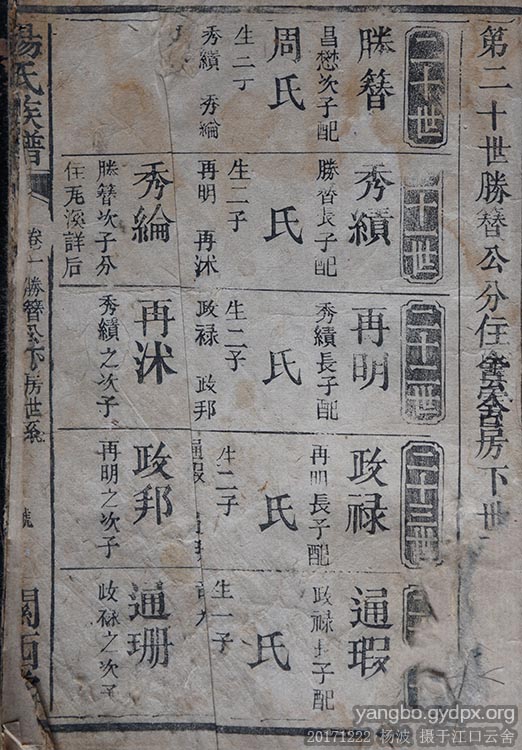 第二十世勝簪公分住雲舍房下世
二十世
勝簪
昌懋次子配
周氏
生二子
秀績 秀綸
十世
秀績
勝簪長子配
氏
生二子
再明 再沭
秀綸
勝簪次子分
住旡溪詳后
二十二世
再明
秀績長子配
氏
生二子
政禄 政邦
再沭
秀績之次子
二十三世
政禄
再明長子配
氏
生二子
通瑕
政邦
再明之次子
二
通瑕
政禄長子配
氏
生一子
通珊
政禄之次子
楊氏族譜
卷一 勝簪公下房世系
關西
yangbo.gydpx.org
20171222 杨波 摄于江口云舍